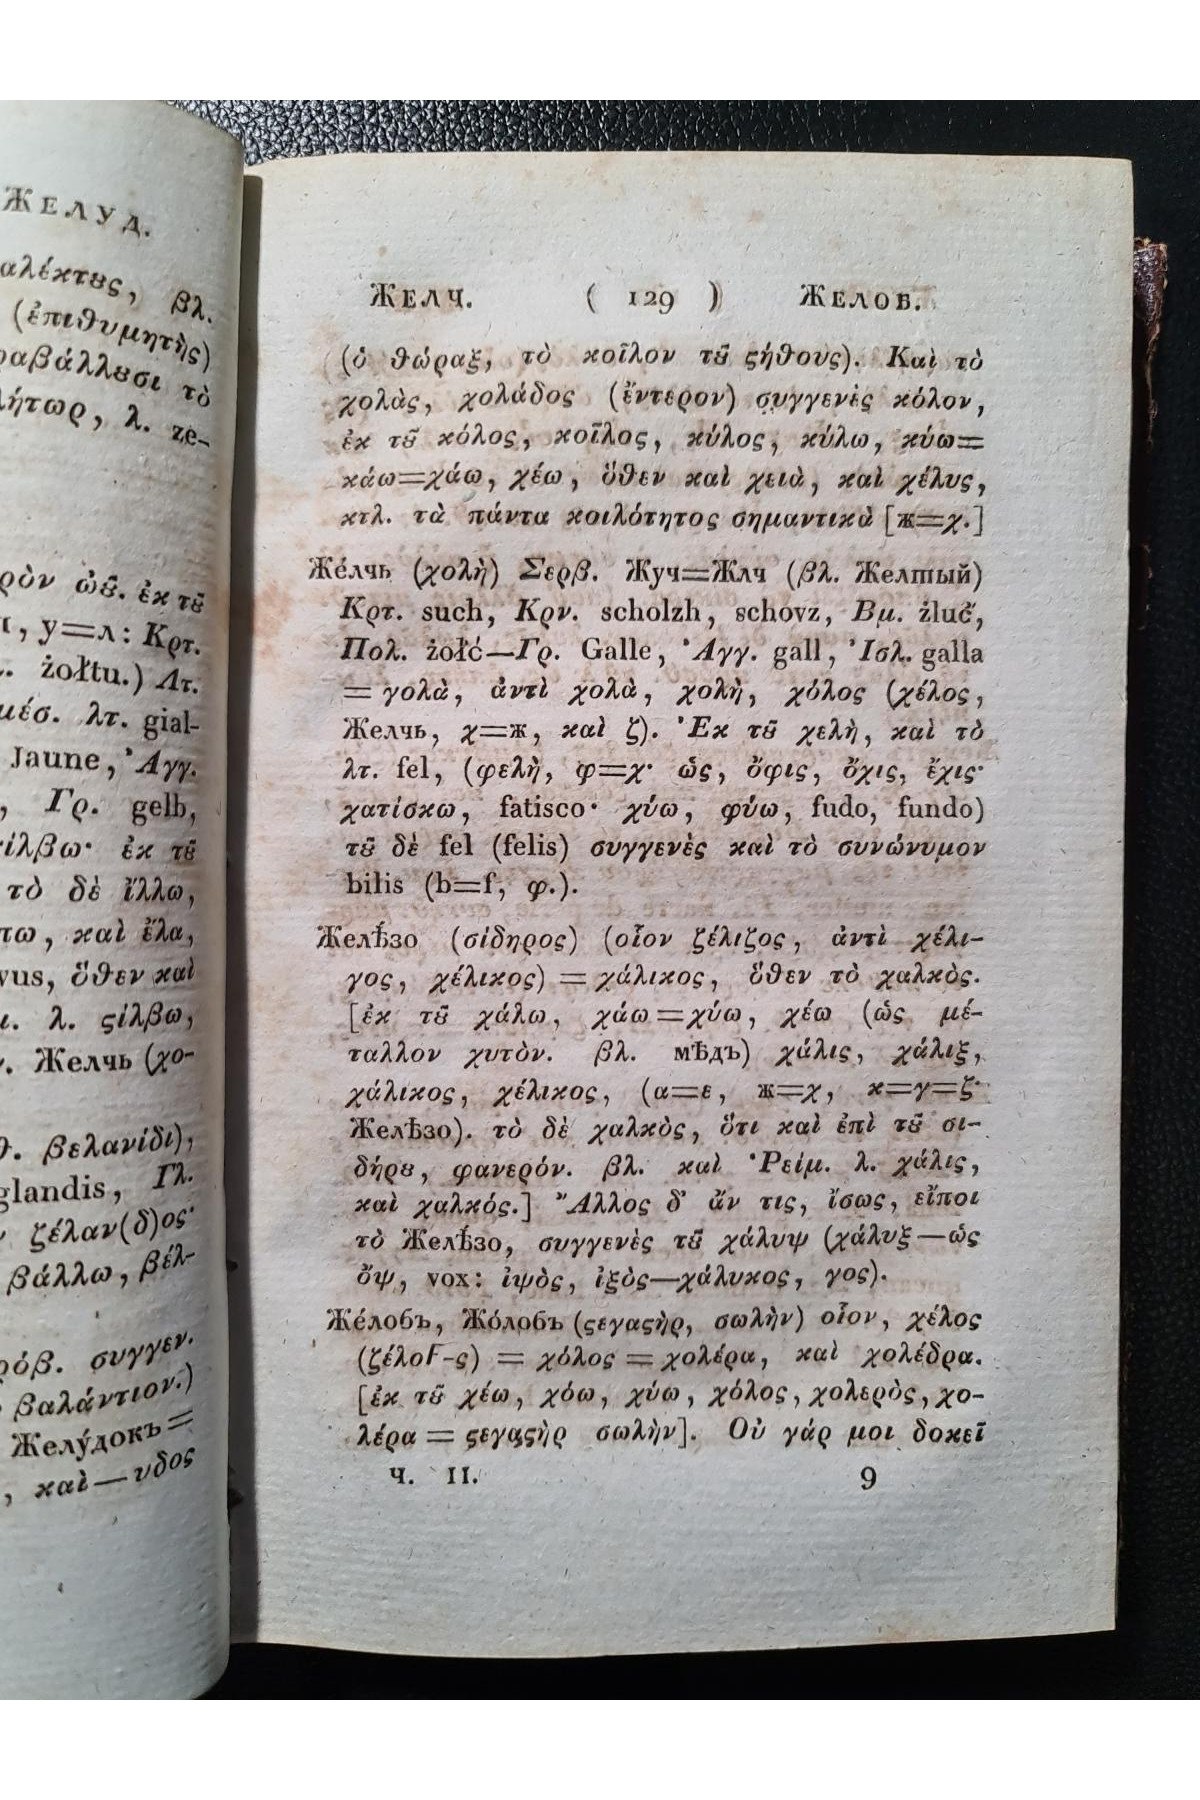 ЖЕЛУД.
αλέκτȣς, βλ.
(ἐπιθυμητὴς)
ραβάλλȣσι τὸ
λήτωρ, λ. ze-
ρὸν ὠȣ͂. ἐκ τȣ͂
, у=л: Κρτ.
żołtu.) Λτ.
μέσ. λτ. gial-
Jaune, Ἀγγ.
, Γρ. gelb,
ίλβω· ἐκ τȣ͂
τὸ δὲ ἴλλω,
πω, καὶ ἔλα,
vus, ὅθεν καὶ
λ. ϛίλβω,
. Желчь (χο-
θ. βελανίδι),
glandis, Γλ.
ζέλαν(δ)ος·
βάλλω, βέλ-
ρόβ. συγγεν.
βαλάντιον.)
Желу́докъ=
, καὶ—υδος
ЖЕЛЧ. ( 129 ) ЖЕЛОБ.
(ὁ θώραξ, τὸ κοῖλον τȣ͂ ϛήθους). Καὶ τὸ
χολὰς, χολάδος (ἔντερον) συγγενὲς κόλον,
ἐκ τȣ͂ κόλος, κοῖλος, κύλος, κύλω, κύω=
κάω=χάω, χέω, ὅθεν καὶ χειὰ, καὶ χέλυς,
κτλ. τὰ πάντα κοιλότητος σημαντικὰ [ж=χ.]
Же́лчь (χολὴ) Σερβ. Жуч=Жлч (βλ. Желтый)
Κρτ. such, Κρν. scholzh, schovz, Βμ. żluč,
Πολ. żołć—Γρ. Galle, Ἀγγ. gall, Ἰσλ. galla
= γολὰ, ἀντὶ χολὰ, χολὴ, χόλος (χέλος,
Желчь, χ=ж, καὶ ζ). Ἐκ τȣ͂ χελὴ, καὶ τὸ
λτ. fel, (φελὴ, φ=χ· ὡς, ὄφις, ὄχις, ἔχις·
χατίσκω, fatisco· χύω, φύω, fudo, fundo)
τȣ͂ δὲ fel (felis) συγγενὲς καὶ τὸ συνώνυμον
bilis (b=f, φ.).
Желѣ́зо (σίδηρος) (οἷον ζέλιζος, ἀντὶ χέλι-
γος, χέλικος) = χάλικος, ὅθεν τὸ χαλκὸς.
[ἐκ τȣ͂ χάλω, χάω=χύω, χέω (ὡς μέ-
ταλλον χυτὸν. βλ. мѣдъ) χάλις, χάλιξ,
χάλικος, χέλικος, (α=ε, ж=χ, κ=γ=ζ·
Желѣзо). τὸ δὲ χαλκὸς, ὅτι καὶ ἐπὶ τȣ͂ σι-
δήρȣ, φανερόν. βλ. καὶ Ῥείμ. λ. χάλις,
καὶ χαλκός.] Ἄλλος δ' ἄν τις, ἴσως, εἴποι
τὸ Желѣ́зо, συγγενὲς τȣ͂ χάλυψ (χάλυξ—ὡς
ὄψ, vox: ἰψὸς, ἰξὸς—χάλυκος, γος).
Же́лобъ, Жо́лобъ (ϛεγαϛὴρ, σωλὴν) οἷον, χέλος
(ζέλοϜ-ς) = χόλος = χολέρα, καὶ χολέδρα.
[ἐκ τȣ͂ χέω, χόω, χύω, χόλος, χολερὸς, χο-
λέρα = ϛεγαϛὴρ σωλὴν]. Οὐ γάρ μοι δοκεῖ
Ч. II. 9